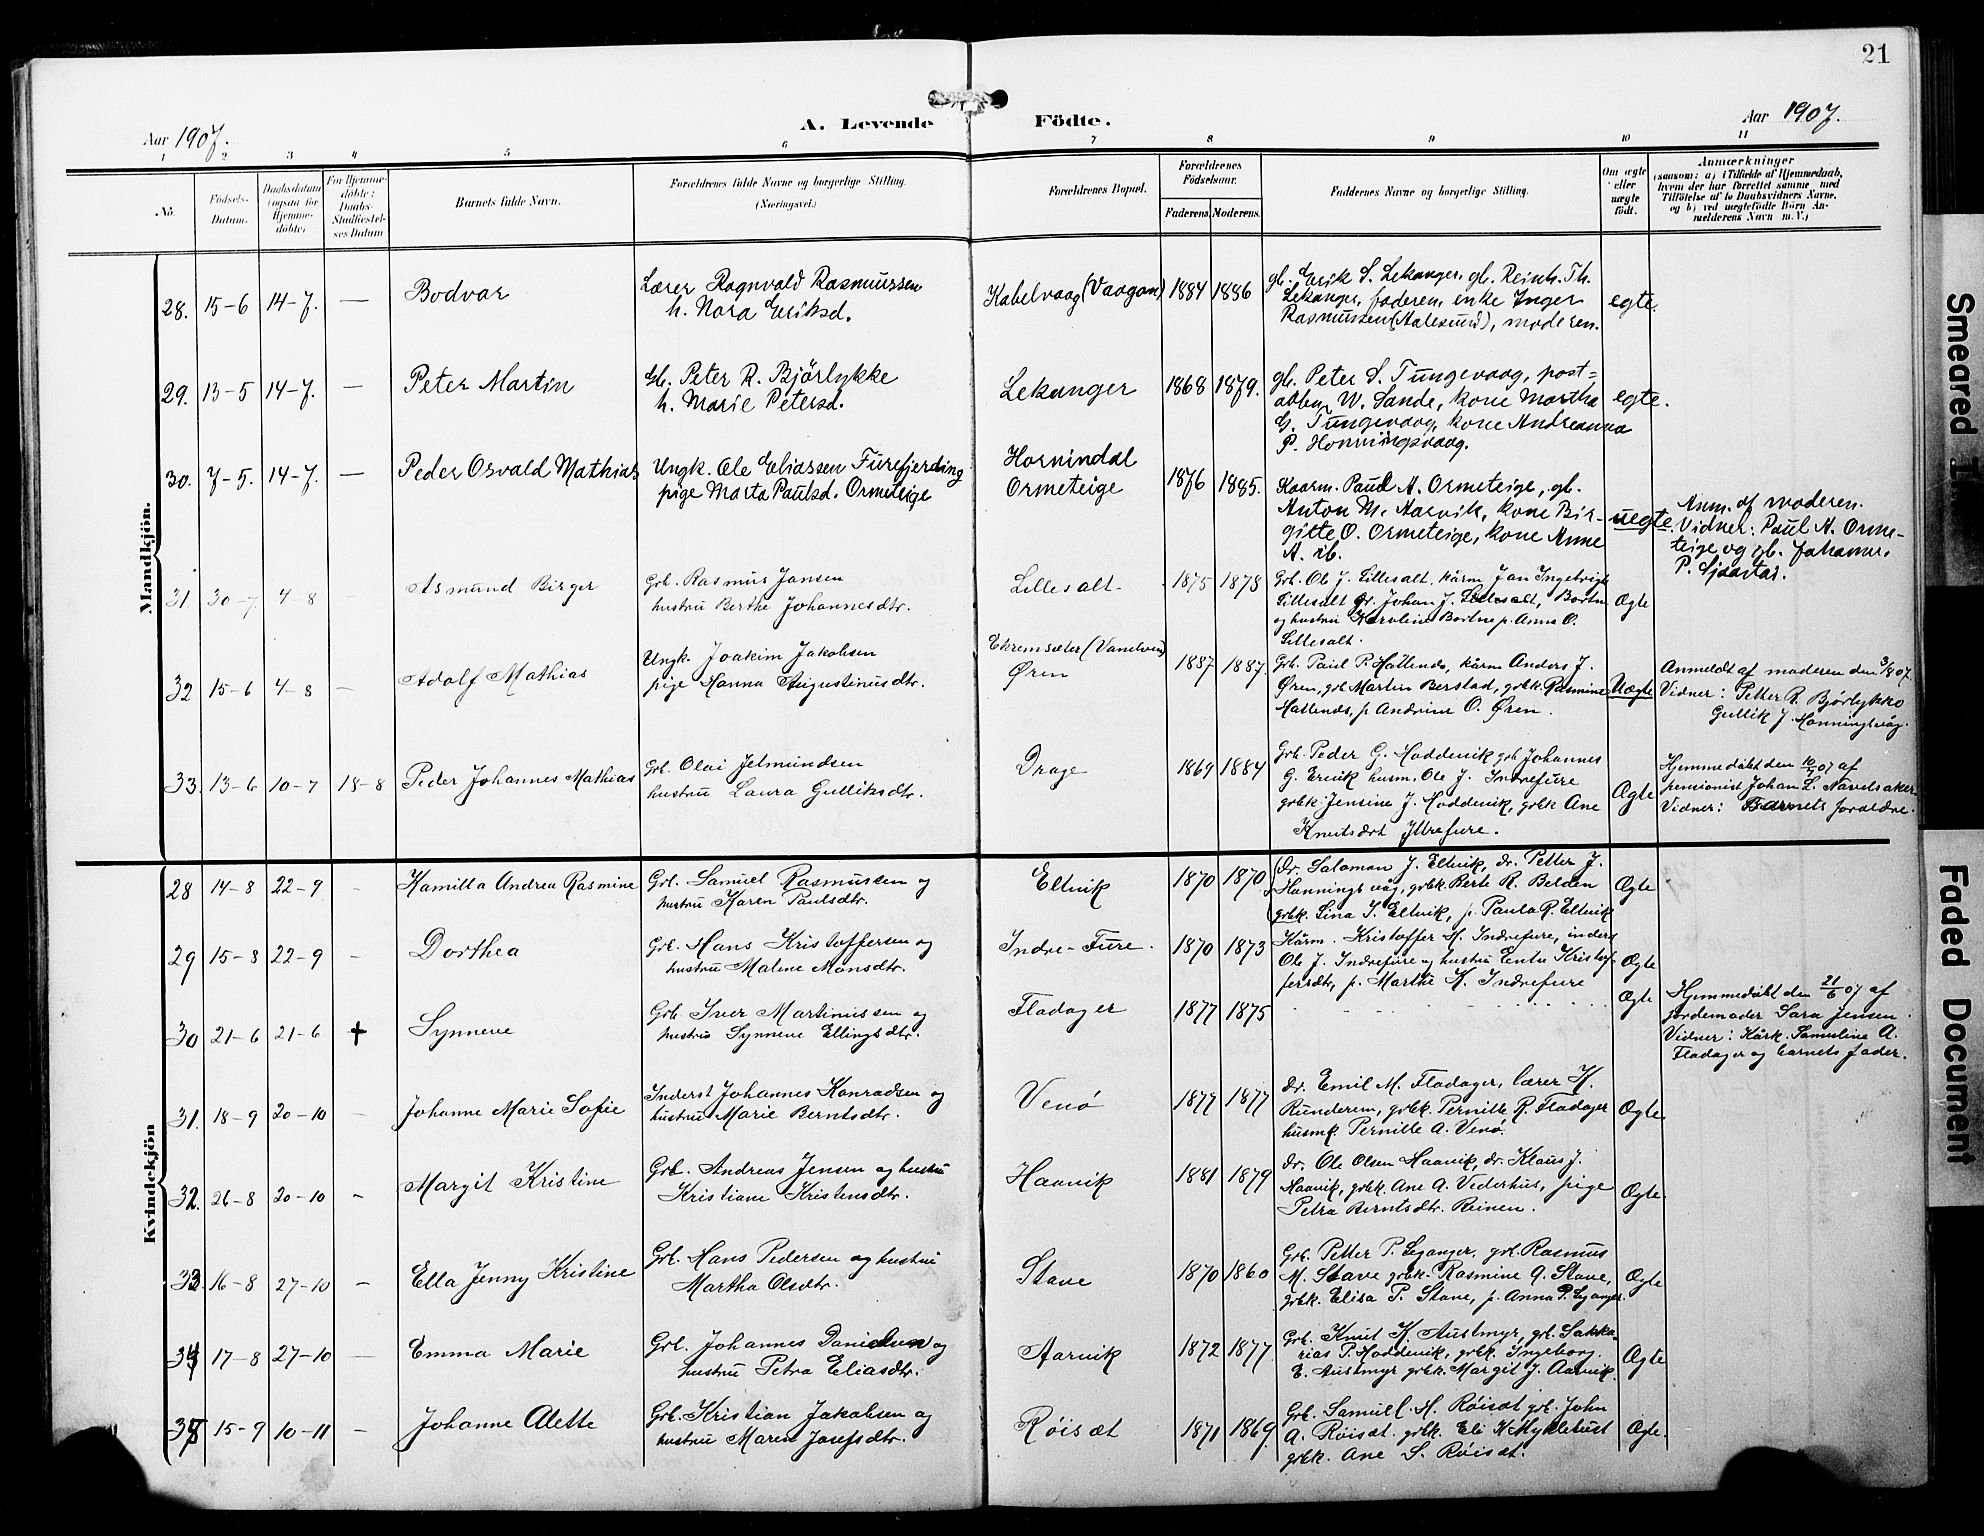 21
Aar 1907.
A. Levende Födte.
Aar 1907.
1 2 3 4 5 6 7 8 9 10 11
No.
Födsels-Datum.
Daabsdatum (ogsaa for Hjemme-döbte)
For Hjemme-döbte: Daabs-Stadfæstel-ses Datum
Barnets fulde Navn.
Forældrenes fulde Navne og borgerlige Stilling. (Næringsvei.)
Forældrenes Bopæl.
Forældrenes Födselsaar.
Faderens. Moderens.
Faddernes Navne og borgerlige Stilling.
Om ægte eller uægte födt.
Anmærkninger
(saasom: a) i Tilfælde af Hjemmedaab,
hvem der har forrettet samme med
Tilföielse af to Daabsvidners Navne,
og b) ved uægtefödte Börn An-
melderens Navn m. V.)
Mandkjön.
28. 15-6 14-7. — Bodvar
Lærer Ragnvald Rasmussen
h. Nora Eriksd.
Kabelvaag (Vaagan) 1884 1886
gb. Erik S. Lekanger, gb. Reinh. Th.
Lekanger, faderen, enke Inger
Rasmussen (Aalesund), moderen.
egte.
29. 13-5 14-7. — Peter Martin
Gb. Peter R. Björlykke
h. Marie Petersd.
Lekanger 1868 1879.
gb. Peter S. Tungevaag, post=
aabn. W. Sande, kone Martha
G. Tungevaag, kone Andreanna
P. Honningsvaag.
egte.
30. 7-5. 14-7. — Peder Osvald Mathias
Ungk. Ole Eliassen Furefjerding
pige Marta Paulsd. Ormeteige
Hornindal
Ormeteige
1876 1885.
Kaarm. Paul A. Ormeteige, gb.
Anton M. Aarvik, kone Bir-
gitte O. Ormeteige, kone Anne
A. ib.
uegte.
Anm. af moderen.
Vidner: Paul A. Orme-
teige og gb. Johannes
P. Sjaastad.
31. 30-7. 4-8 — Asmund Birger
Grb. Rasmus Jansen
hustru Berthe Johannesdtr.
Lillesalt 1875 1878
Grb. Ole J. Lillesalt, kårm Jan Ingebrigts
Lillesalt Dr. Johan J. Lillesalt, Bortne
og hustru Karoline Bortne p. Anna O.
Lillesalt.
Ægte
32 15-6 4-8 — Adolf Mathias
Ungk. Joakim Jakobsen
pige Hanna Augustinusdtr.
Ekremsæter (Vanelven)
Øren
1887 1887.
Grb. Paul P. Hatlenes, kårm Anders J.
Øren, grb Martin Berstad, grbk. Rasmine
Hatlenes, p. Andrine O. Øren.
Uægte
Anmeldt af moderen den 3/8 07.
Vidner: Petter R. Bjørlykke
Gullik J. Honningsvåg.
33. 13-6 10-7 18-8 Peder Johannes Mathias
Grb. Olai Jetmundsen
hustru Laura Gulliksdtr.
Drage 1869 1884
Grb. Peder G. Hoddevik grb Johannes
G. Ervik husm. Ole J. Indrefure
grbk. Jensine J. Hoddevik, grbk Ane
Knutsdtr Ytrefure.
Ægte
Hjemmedøbt den 10/7 07 af
pensionist Johan L. Navelsaker.
Vidner: Barnets forældre.
Kvindekjön
28 14-8 22-9 — Kamilla Andrea Rasmine
Grb. Samuel Rasmussen og
hustru Karen Paulsdtr.
Eltvik 1870 1870
Dr. Salamon J. Eltvik, dr. Petter J.
Honningsvåg, grbk. Berte R. Belden
grbk. Lina J. Eltvik, p. Paula R. Eltvik
Ægte
29 15-8 22-9 — Dorthea
Grb. Hans Kristoffersen og
hustru Malene Monsdtr.
Indre-Fure. 1870 1873
Kårm. Kristoffer H. Indrefure, inders
Ole J. Indrefure og hustru Kristof-
fersdtr, p. Marthe K. Indrefure
Ægte
30 21-6 21-6 + Synneve
Grb. Iver Martinussen og
hustru Synneve Ellingsdtr.
Fladager 1877 1875
Ægte
Hjemmedøbt den 21/6 07 af
jordemoder Sara Jensen.
Vidner: Kårk. Samueline A.
Fladager og barnets fader.
31. 18-9 20-10 — Johanne Marie Sofie
Inderst Johannes Konradsen og
hustru Marie Berntsdtr.
Venø 1877 1877
dr. Emil M. Fladager, lærer K.
Runderem, grbk. Pernille R. Fladager
husmk. Pernille A. Venø.
Ægte
32. 26-8 20-10 — Margit Kristine
Grb. Andreas Jensen og hustru
Kristiane Kristensdtr.
Haavik 1881 1879
dr. Ole Olsen Haavik, dr. Klaus J.
Haavik, grbk. Ane A. Vederhus, pige
Petra Berntsdtr. Reinen.
Ægte.
33. 16-8 27-10 — Ella Jenny Kristine
Grb. Hans Pedersen og hustru
Martha Olsdtr.
Stave 1870 1860
Grb. Petter P. Leganger, grb. Rasmus
M. Stave grbk. Rasmine A. Stave,
grbk. Elisa P. Stave, p. Anna P. Leganger.
Ægte
34 17-8 27-10 — Emma Marie
Grb. Johannes Danielsen og
hustru Petra Eliasdtr.
Aarvik 1872 1877
Grb. Knut K. Austmyr, grb. Sakka-
rias P. Hoddevik, grbk. Ingeborg
E. Austmyr grbk. Margit J. Aarvik.
Ægte
35 15-9 10-11 — Johanne Alette
Grb. Kristian Jakobsen og
hustru Maren Josefsdtr.
Røisæt 1871 1869
Grb. Samuel M. Røisæt grb. John
A. Røisæt. grbk. Eli K Myklebust
grbk. Ane S. Røisæt.
Ægte.
Smeared
Faded Document